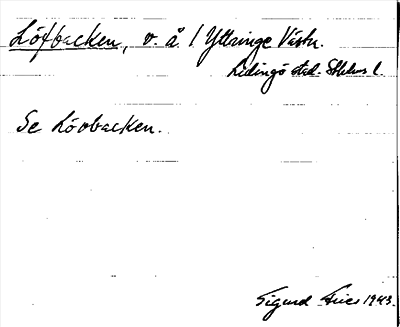 Löfbacken, v. å. / Yttringe Västr.
Lidingö stad. Sthlms l.
Se Lövbacken.
Sigurd Fries 1943.